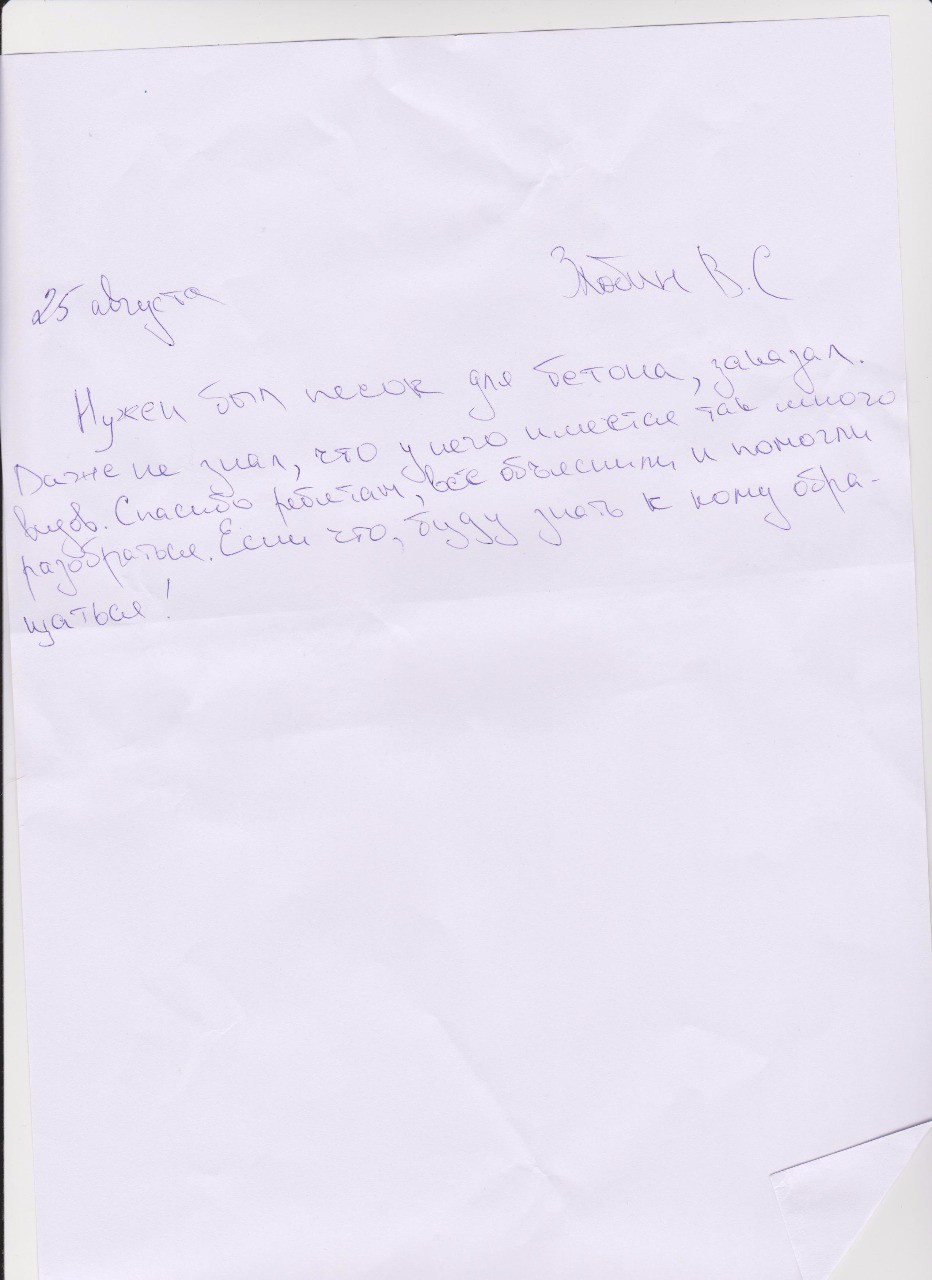 25 августа Злобин В.С
Нужен был песок для бетона, заказал.
Даже не знал, что у него имеется так много
видов. Спасибо ребятам, всё объяснили и помогли
разобраться. Если что, буду знать к кому обра-
щаться!